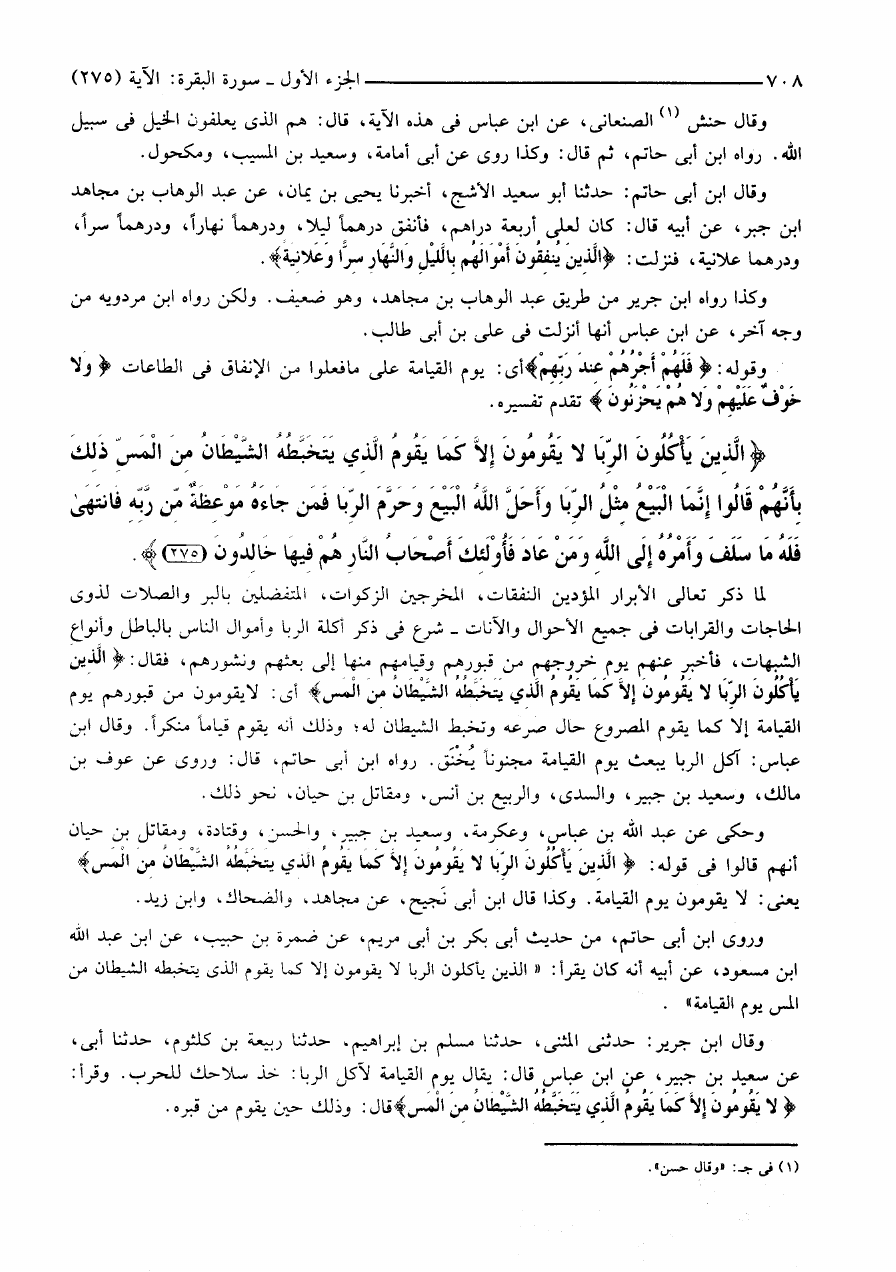 ٧٠٨ ــــــــ الجزء الأول ـ سورة البقرة: الآية (٢٧٥)
وقال حنش (١) الصنعانى، عن ابن عباس فى هذه الآية، قال: هم الذى يعلفون الخيل فى سبيل
الله. رواه ابن أبى حاتم، ثم قال: وكذا روى عن أبى أمامة، وسعيد بن المسيب، ومكحول.
وقال ابن أبى حاتم: حدثنا أبو سعيد الأشج، أخبرنا يحيى بن يمان، عن عبد الوهاب بن مجاهد
ابن جبر، عن أبيه قال: كان لعلى أربعة دراهم، فأنفق درهماً ليلا، ودرهماً نهاراً، ودرهماً سراً،
ودرهما علانية، فنزلت: ﴿الَّذِينَ يُنفِقُونَ أَمْوَالَهُم بِاللَّيْلِ وَالنَّهَارِ سِرًّا وَعَلانِيَةً﴾.
وكذا رواه ابن جرير من طريق عبد الوهاب بن مجاهد، وهو ضعيف. ولكن رواه ابن مردويه من
وجه آخر، عن ابن عباس أنها أنزلت فى على بن أبى طالب.
وقوله: ﴿ فَلَهُمْ أَجْرُهُمْ عِندَ رَبِّهِمْ﴾أى: يوم القيامة على مافعلوا من الإنفاق فى الطاعات ﴿ وَلا
خَوْفٌ عَلَيْهِمْ وَلا هُمْ يَحْزَنُونَ ﴾ تقدم تفسيره.
﴿ الَّذِينَ يَأْكُلُونَ الرِّبَا لا يَقُومُونَ إِلاَّ كَمَا يَقُومُ الَّذِي يَتَخَبَّطُهُ الشَّيْطَانُ مِنَ الْمَسِّ ذَلِكَ
بِأَنَّهُمْ قَالُوا إِنَّمَا الْبَيْعُ مِثْلُ الرِّبَا وَأَحَلَّ اللَّهُ الْبَيْعَ وَحَرَّمَ الرِّبَا فَمَن جَاءَهُ مَوْعِظَةٌ مِّن رَّبِّهِ فَانتَهَىٰ
فَلَهُ مَا سَلَفَ وَأَمْرُهُ إِلَى اللَّهِ وَمَنْ عَادَ فَأُوْلَئِكَ أَصْحَابُ النَّارِ هُمْ فِيهَا خَالِدُونَ (٢٧٥)﴾.
لما ذكر تعالى الأبرار المؤدين النفقات، المخرجين الزكوات، المتفضلين بالبر والصلات لذوى
الحاجات والقرابات فى جميع الأحوال والآنات ـ شرع فى ذكر أكلة الربا وأموال الناس بالباطل وأنواع
الشبهات، فأخبر عنهم يوم خروجهم من قبورهم وقيامهم منها إلى بعثهم ونشورهم، فقال: ﴿ الَّذِينَ
يَأْكُلُونَ الرِّبَا لا يَقُومُونَ إِلاَّ كَمَا يَقُومُ الَّذِي يَتَخَبَّطُهُ الشَّيْطَانُ مِنَ الْمَسِّ﴾ أى: لايقومون من قبورهم يوم
القيامة إلا كما يقوم المصروع حال صرعه وتخبط الشيطان له؛ وذلك أنه يقوم قياماً منكراً. وقال ابن
عباس: آكل الربا يبعث يوم القيامة مجنوناً يُخْنَق. رواه ابن أبى حاتم، قال: وروى عن عوف بن
مالك، وسعيد بن جبير، والسدى، والربيع بن أنس، ومقاتل بن حيان، نحو ذلك.
وحكى عن عبد الله بن عباس، وعكرمة، وسعيد بن جبير، والحسن، وقتادة، ومقاتل بن حيان
أنهم قالوا فى قوله: ﴿ الَّذِينَ يَأْكُلُونَ الرِّبَا لا يَقُومُونَ إِلاَّ كَمَا يَقُومُ الَّذِي يَتَخَبَّطُهُ الشَّيْطَانُ مِنَ الْمَسِّ﴾
يعنى: لا يقومون يوم القيامة. وكذا قال ابن أبى نَجِيح، عن مجاهد، والضحاك، وابن زيد.
وروى ابن أبى حاتم، من حديث أبى بكر بن أبى مريم، عن ضمرة بن حبيب، عن ابن عبد الله
ابن مسعود، عن أبيه أنه كان يقرأ: « الذين يأكلون الربا لا يقومون إلا كما يقوم الذى يتخبطه الشيطان من
المس يوم القيامة» .
وقال ابن جرير: حدثنى المثنى، حدثنا مسلم بن إبراهيم، حدثنا ربيعة بن كلثوم، حدثنا أبى،
عن سعيد بن جبير، عن ابن عباس قال: يقال يوم القيامة لآكل الربا: خذ سلاحك للحرب. وقرأ:
﴿ لا يَقُومُونَ إِلاَّ كَمَا يَقُومُ الَّذِي يَتَخَبَّطُهُ الشَّيْطَانُ مِنَ الْمَسِّ﴾قال: وذلك حين يقوم من قبره.
(١) فى جـ: «وقال حسن».